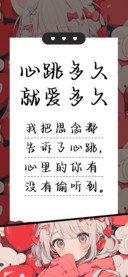 心跳多久
就爱多久
我把思念都
告诉了心跳,
心里的你有
没有偷听到。